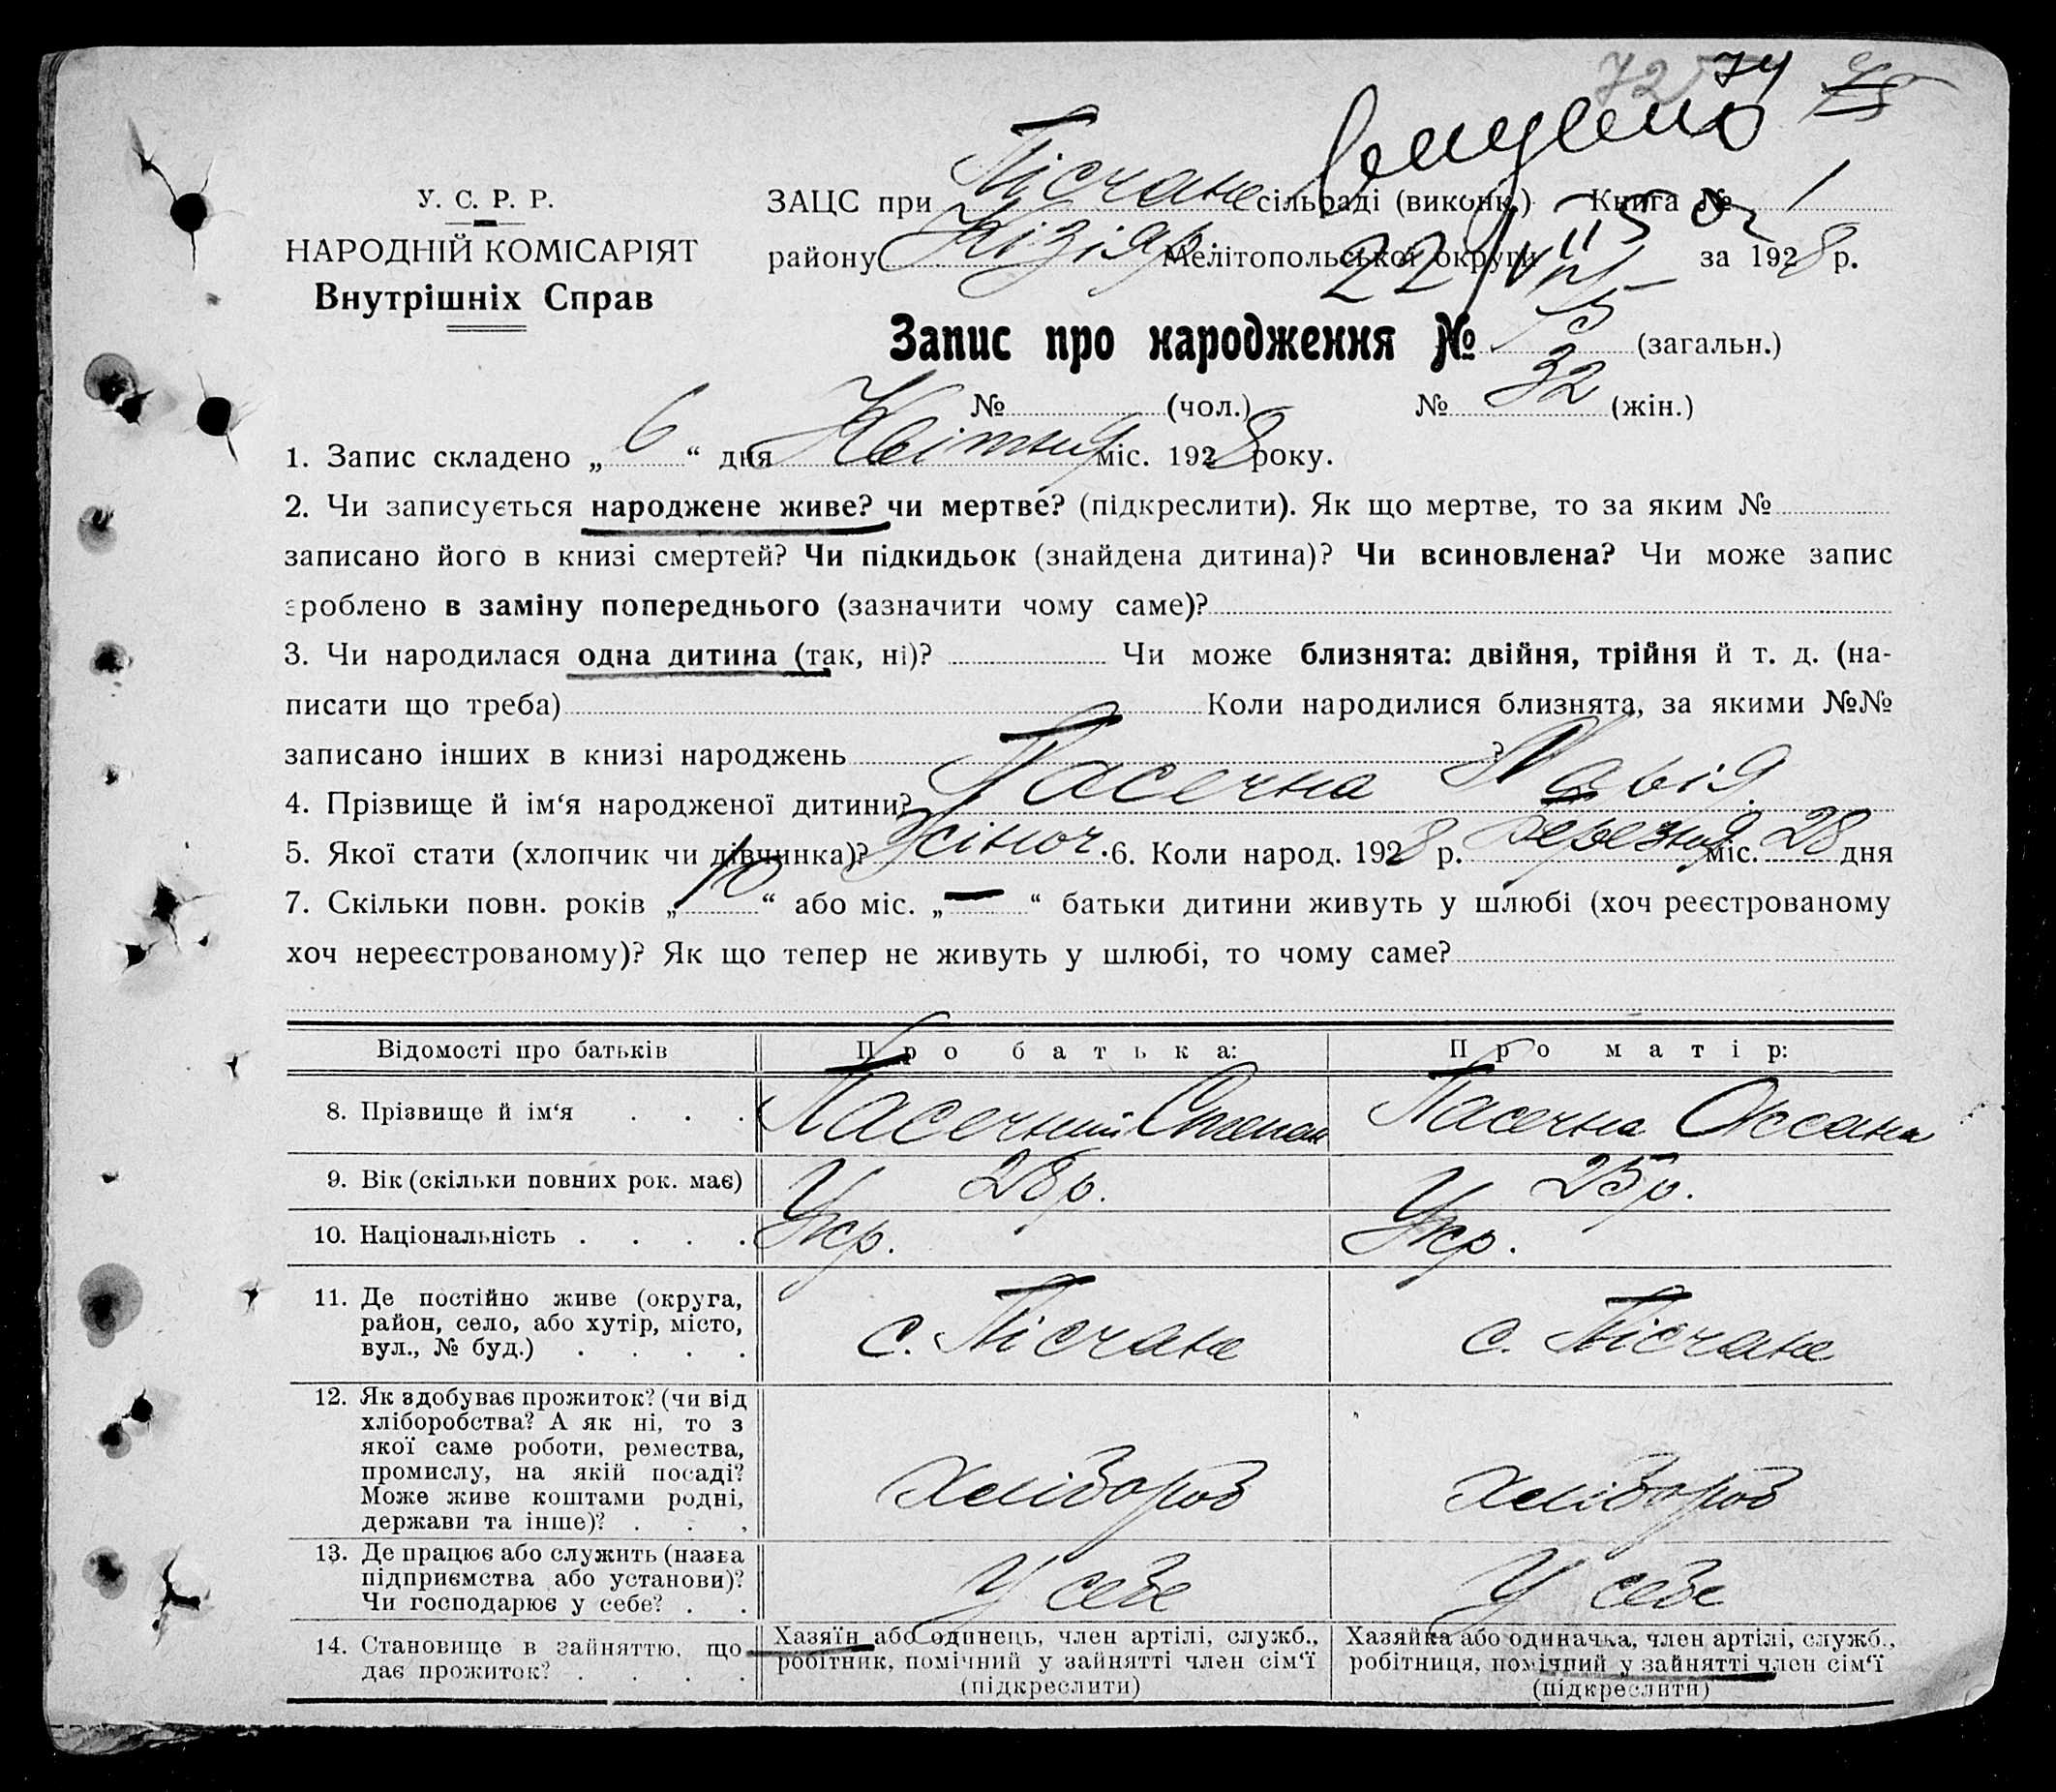 72 74 75
У. С. Р. Р.
НАРОДНІЙ КОМІСАРІЯТ
Внутрішніх Справ
ЗАЦС при Пісчане сільраді (виконк.) Книга № 1
району Кізіяр Мелітопольської округи за 1928 р.
22/VII
Запис про народження № (загальн.)
№ (чол.) № 32 (жін.)
1. Запис складено „ 6 “ дня Квітня міс. 1928 року.
2. Чи записується народжене живе? чи мертве? (підкреслити). Як що мертве, то за яким №
записано його в книзі смертей? Чи підкидьок (знайдена дитина)? Чи всиновлена? Чи може запис
зроблено в заміну попереднього (зазначити чому саме)?
3. Чи народилася одна дитина (так, ні)? Чи може близнята: двійня, трійня й т. д. (на-
писати що треба) Коли народилися близнята, за якими №№
записано інших в книзі народжень ?
4. Прізвище й ім‘я народженої дитини? Пасечна Марія
5. Якої стати (хлопчик чи дівчинка)? Жіноч. 6. Коли народ. 1928 р. Березня міс. 28 дня
7. Скільки повн. років „ 10 “ або міс. „ — “ батьки дитини живуть у шлюбі (хоч реєстрованому
хоч нереєстрованому)? Як що тепер не живуть у шлюбі, то чому саме?
Відомості про батьків Про батька: Про матір:
8. Прізвище й ім‘я . . . Пасечний Степан Пасечна Оксана
9. Вік (скільки повних рок. має) 28 р. 25 р.
10. Національність . . . . Укр. Укр.
11. Де постійно живе (округа,
район, село, або хутір, місто,
вул., № буд.) . . . . с. Пісчане с. Пісчане
12. Як здобуває прожиток? (чи від
хліборобства? А як ні, то з
якої саме роботи, ремества,
промислу, на якій посаді?
Може живе коштами родні,
держави та інше)? . . . Хлібороб Хлібороб
13. Де працює або служить (назва
підприємства або установи)?
Чи господарює у себе? . . У себе У себе
14. Становище в зайняттю, що
дає прожиток? . . . .
Хазяїн або одинець, член артілі, служб.,
робітник, помічний у зайнятті член сім‘ї
(підкреслити)
Хазяйка або одиначка, член артілі, служб.,
робітниця, помічний у зайнятті член сім‘ї
(підкреслити)